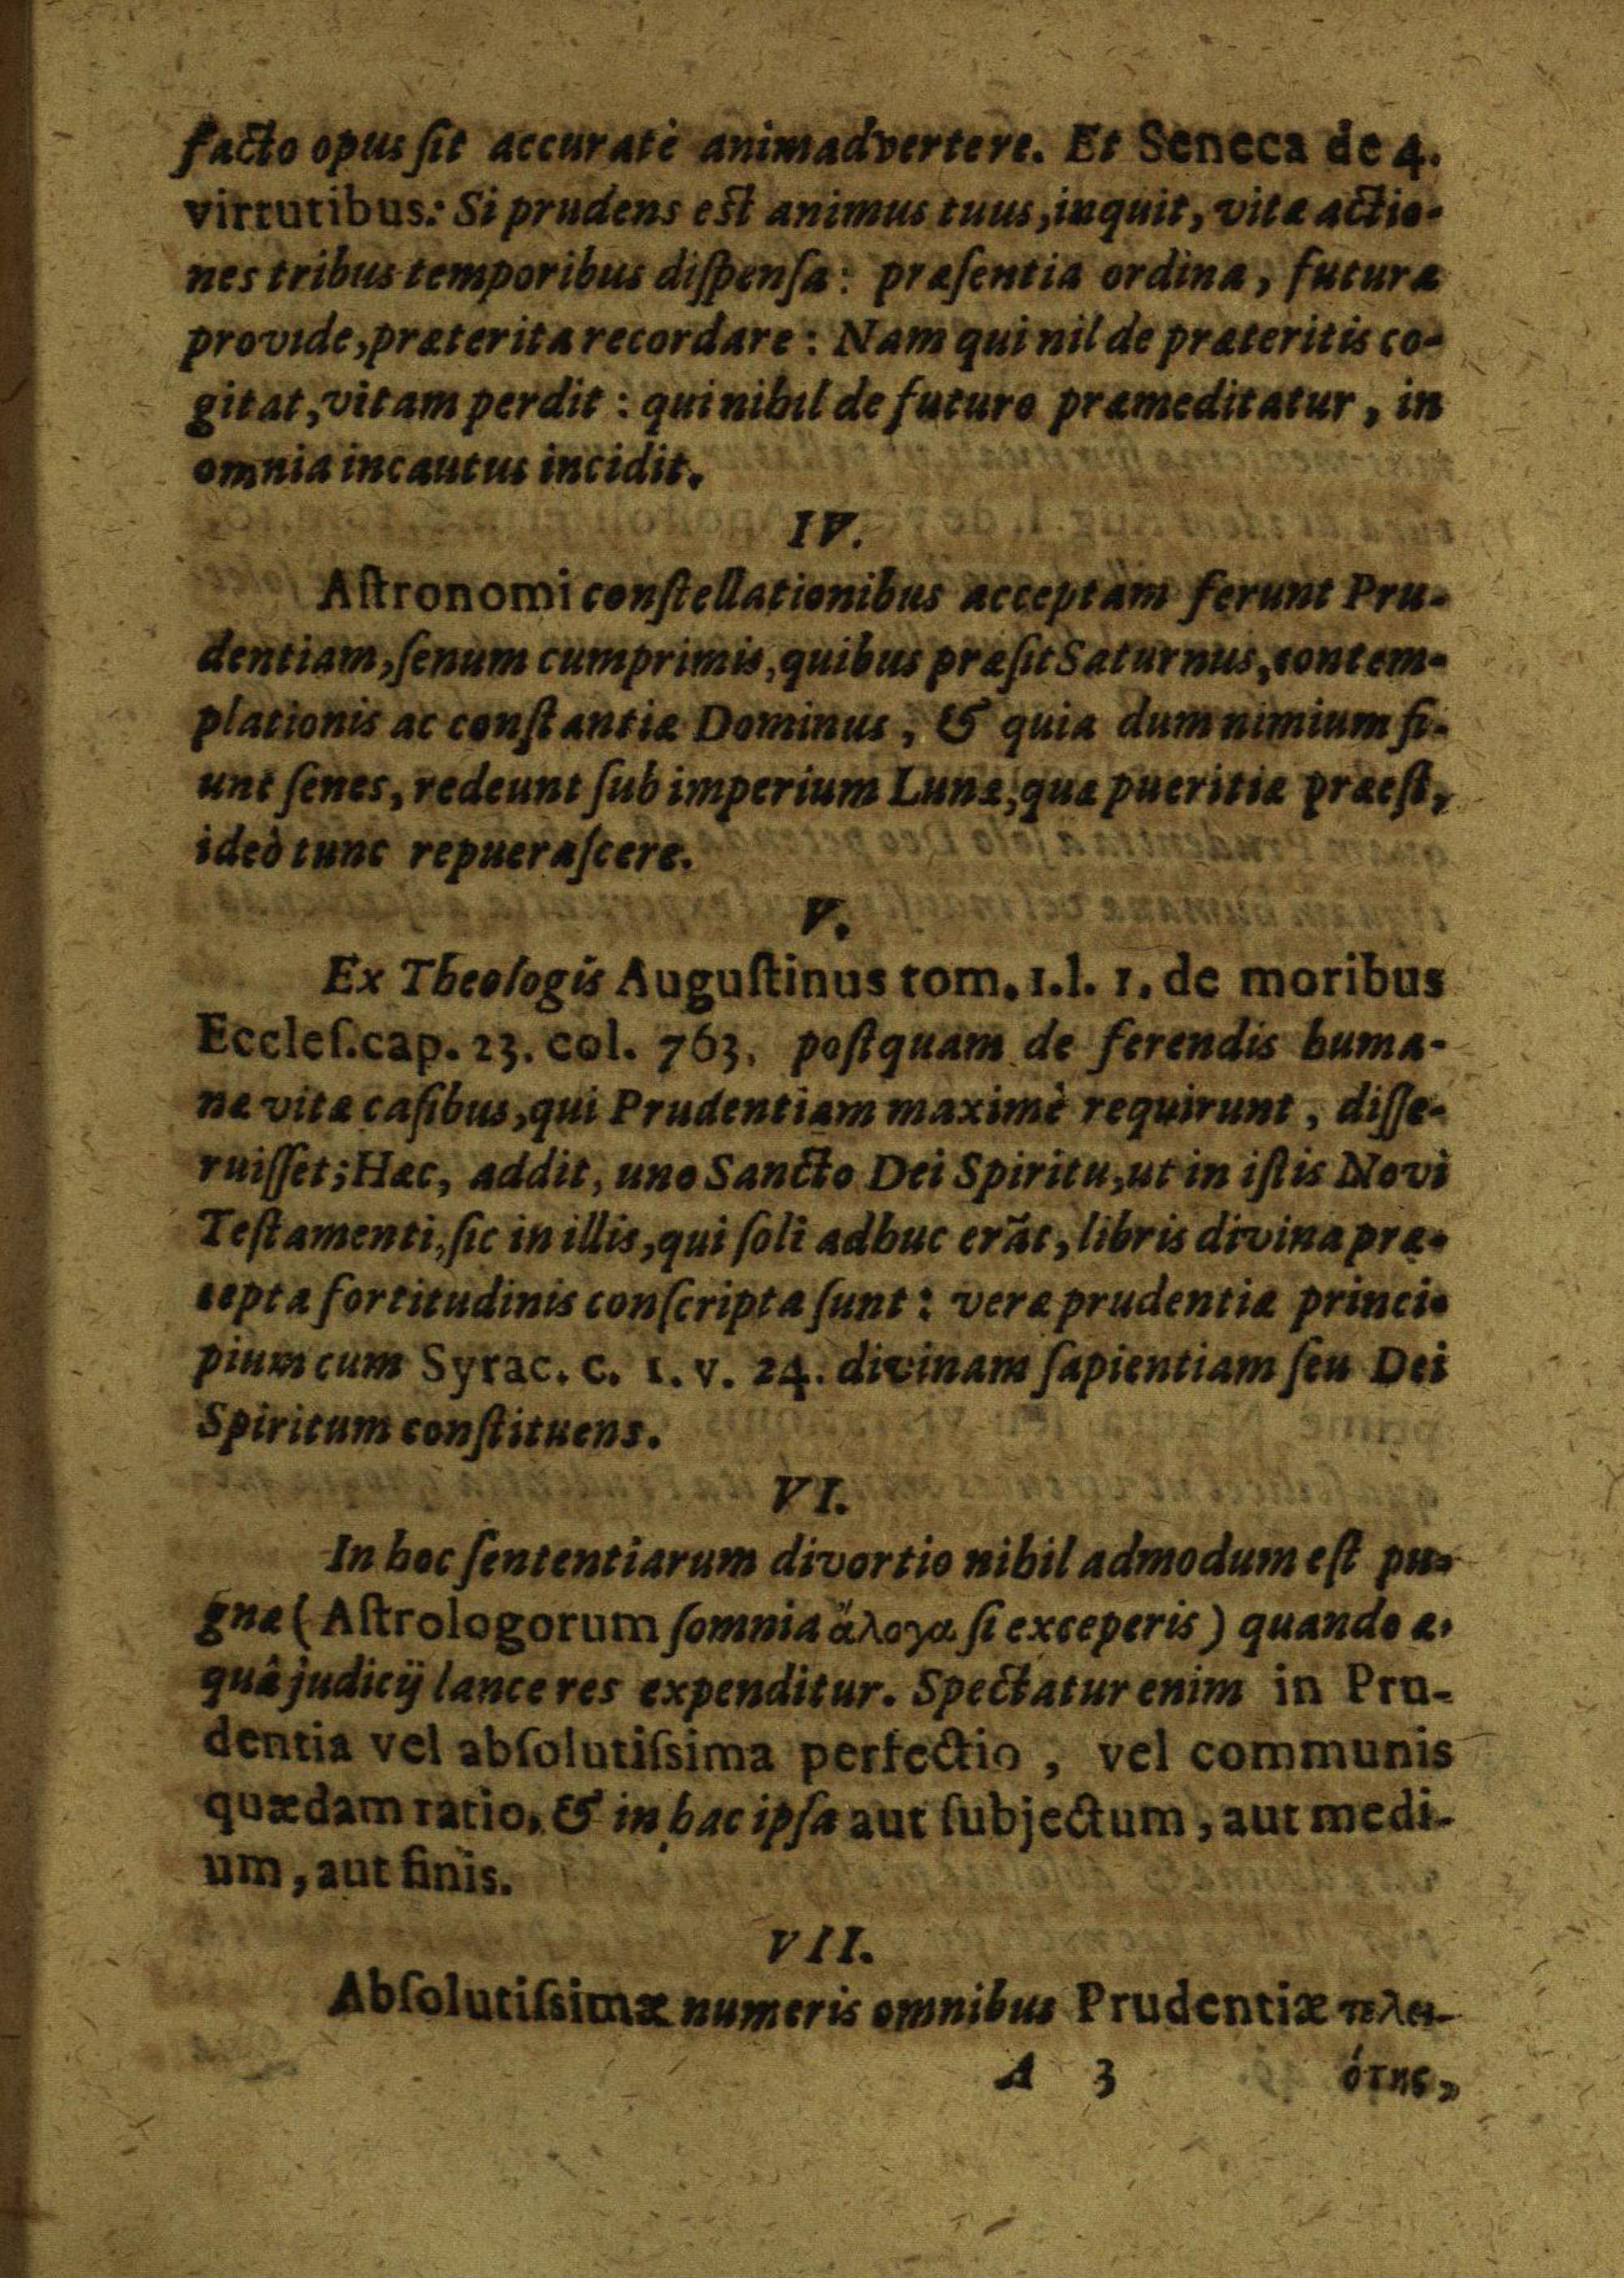 facto opus ſit accuratè animadvertere. Et Seneca de 4.
virtutibus: Si prudens eſt animus tuus, inquit, vitæ actio-
nes tribus temporibus diſpenſa: præſentia ordina, futura
provide, præterita recordare: Nam qui nil de præteritis co-
gitat, vitam perdit: qui nihil de futuro præmeditatur, in
omnia incautus incidit.
IV.
Aſtronomi conſtellationibus acceptam ferunt Pru-
dentiam, ſenum cumprimis, quibus præſit Saturnus, contem-
plationis ac conſtantiæ Dominus, & quia dum nimium fi-
unt ſenes, redeunt ſub imperium Lunæ, quæ pueritiæ præeſt,
ideò tunc repueraſcere.
V.
Ex Theologis Auguſtinus tom. 1. l. 1. de moribus
Eccleſ. cap. 23. col. 763. poſtquam de ferendis huma-
næ vitæ caſibus, qui Prudentiam maximè requirunt, diſſe-
ruiſſet; Hæc, addit, uno Sancto Dei Spiritu, ut in iſtis Novi
Teſtamenti, ſic in illis, qui ſoli adhuc erãt, libris divina præ-
cepta fortitudinis conſcripta ſunt: veræ prudentiæ princi-
pium cum Syrac. c. 1. v. 24. divinam ſapientiam ſeu Dei
Spiritum conſtituens.
VI.
In hoc ſententiarum divortio nihil admodum eſt pu-
gnæ (Aſtrologorum ſomnia ἄλογα ſi exceperis) quando æ-
quâ judicij lance res expenditur. Spectatur enim in Pru-
dentia vel abſolutiſsima perfectio, vel communis
quædam ratio, & in hac ipſa aut ſubjectum, aut medi-
um, aut finis.
VII.
Abſolutiſsimæ numeris omnibus Prudentiæ τελει-
A 3 ότης,